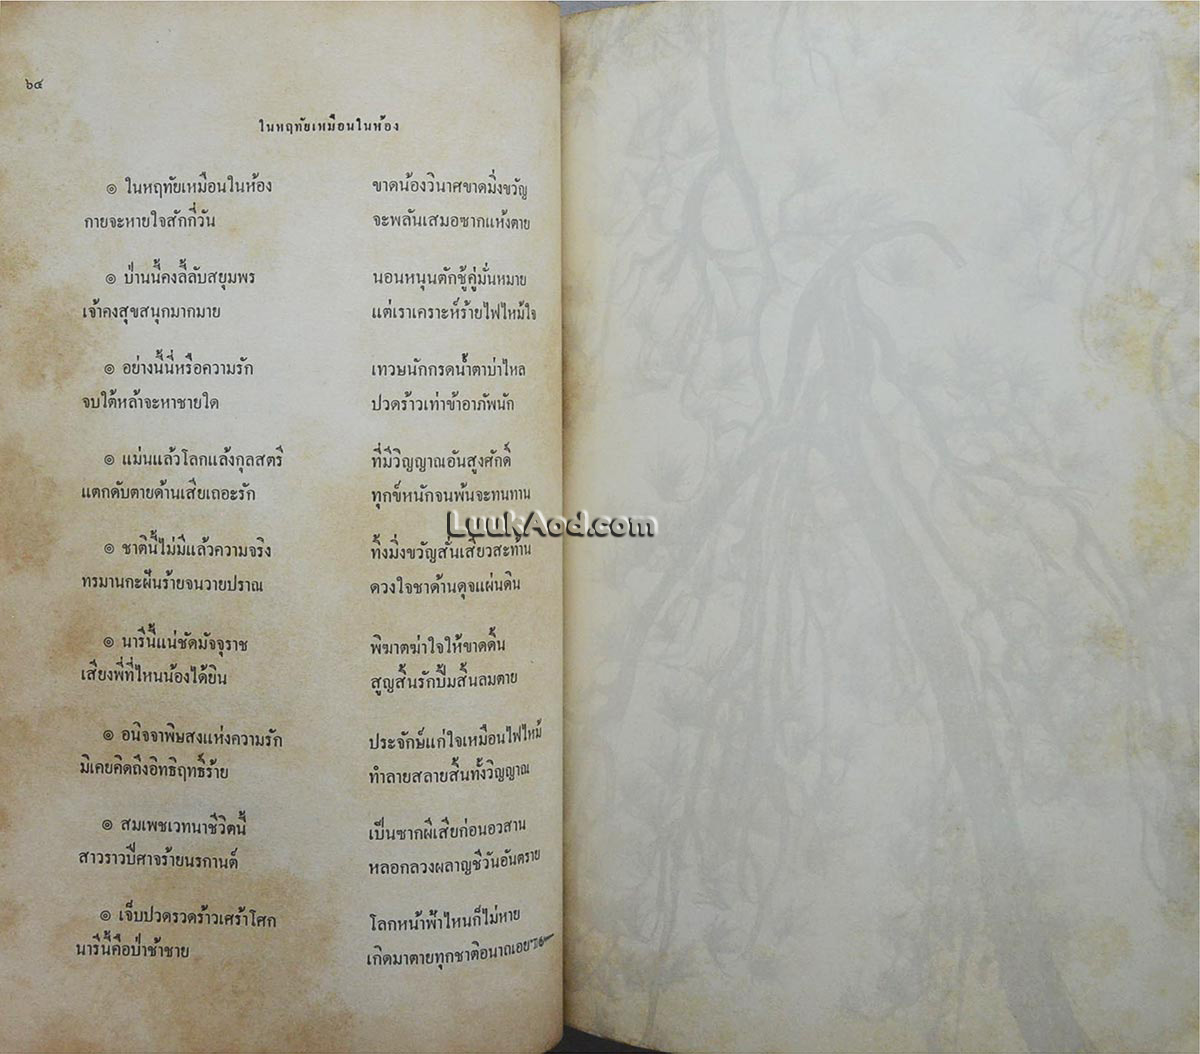 ๖๔
ในหฤทัยเหมือนในห้อง
๏ ในหฤทัยเหมือนในห้อง ขาดน้องวินาศขาดมิ่งขวัญ
กายจะหายใจสักกี่วัน จะพลันเสมอซากแห้งตาย
๏ ป่านนี้คงลี้ลับสยุมพร นอนหนุนตักชู้คู่มั่นหมาย
เจ้าคงสุขสนุกมากมาย แต่เราเคราะห์ร้ายไฟไหม้ใจ
๏ อย่างนี้นี่หรือความรัก เทวษนักกรดน้ำตาบ่าไหล
จบใต้หล้าจะหาชายใด ปวดร้าวเท่าข้าอาภัพนัก
๏ แม่นแล้วโลกแล้งกุลสตรี ที่มีวิญญาณอันสูงศักดิ์
แตกดับตายด้านเสียเถอะรัก ทุกข์หนักจนพ้นจะทนทาน
๏ ชาตินี้ไม่มีแล้วความจริง ทิ้งมิ่งขวัญสั่นเสียวสะท้าน
ทรมานกะฝันร้ายจนวายปราณ ดวงใจชาด้านดุจแผ่นดิน
๏ นารีนี้แน่ชัดมัจจุราช พิฆาตฆ่าใจให้ขาดดิ้น
เสียงพี่ที่ไหนน้องได้ยิน สูญสิ้นรักปิ้มสิ้นลมตาย
๏ อนิจจาพิษสงแห่งความรัก ประจักษ์แก่ใจเหมือนไฟไหม้
มิเคยคิดถึงอิทธิฤทธิ์ร้าย ทำลายสลายสิ้นทั้งวิญญาณ
๏ สมเพชเวทนาชีวิตนี้ เป็นซากผีเสียก่อนอวสาน
สาวราวปีศาจร้ายนรกานต์ หลอกลวงผลาญชีวันอันตราย
๏ เจ็บปวดรวดร้าวเศร้าโศก โลกหน้าฟ้าไหนก็ไม่หาย
นารีนี้คือป่าช้าชาย เกิดมาตายทุกชาติอนาถเอย
LuukAod.com